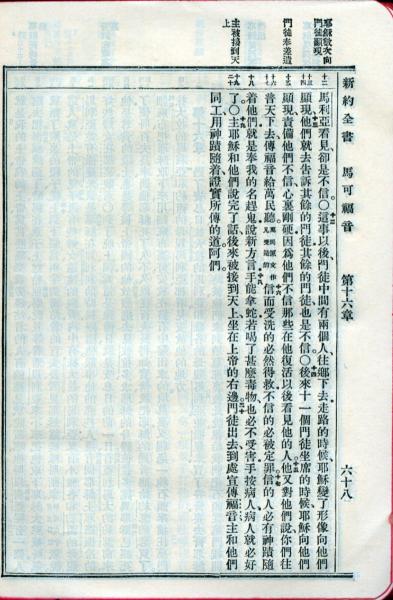 新約全書 馬可福音 第十六章 六十八
耶穌数次向
門徒顯現
門徒奉差遣
主被接到天
上
十二
馬利亞看見、卻是不信。○這事以後、門徒中間有兩個人、往鄉下去走路的時候、耶穌變了形像向他們
十三 十四
顯現、他們就去告訴其餘的門徒、其餘的門徒也是不信。○後來十一個門徒坐席的時候、耶穌向他們
十五
顯現、責備他們不信、心裏剛硬、因為他們不信那些在他復活以後看見他的人。他又對他們說、你們往
十六 十七
普天下去、傳福音給萬民聽。萬民原文作凡受造的信而受洗的必然得救、不信的必被定罪。信的人必有神蹟隨
十八
着他們、就是奉我的名趕鬼、說新方言、手能拿蛇、若喝了甚麼毒物、也必不受害、手按病人、病人就必好
十九 二十
了。○主耶穌和他們說完了話、後來被接到天上、坐在上帝的右邊。門徒出去、到處宣傳福音、主和他們
同工、用神蹟隨着、證實所傳的道。阿們。